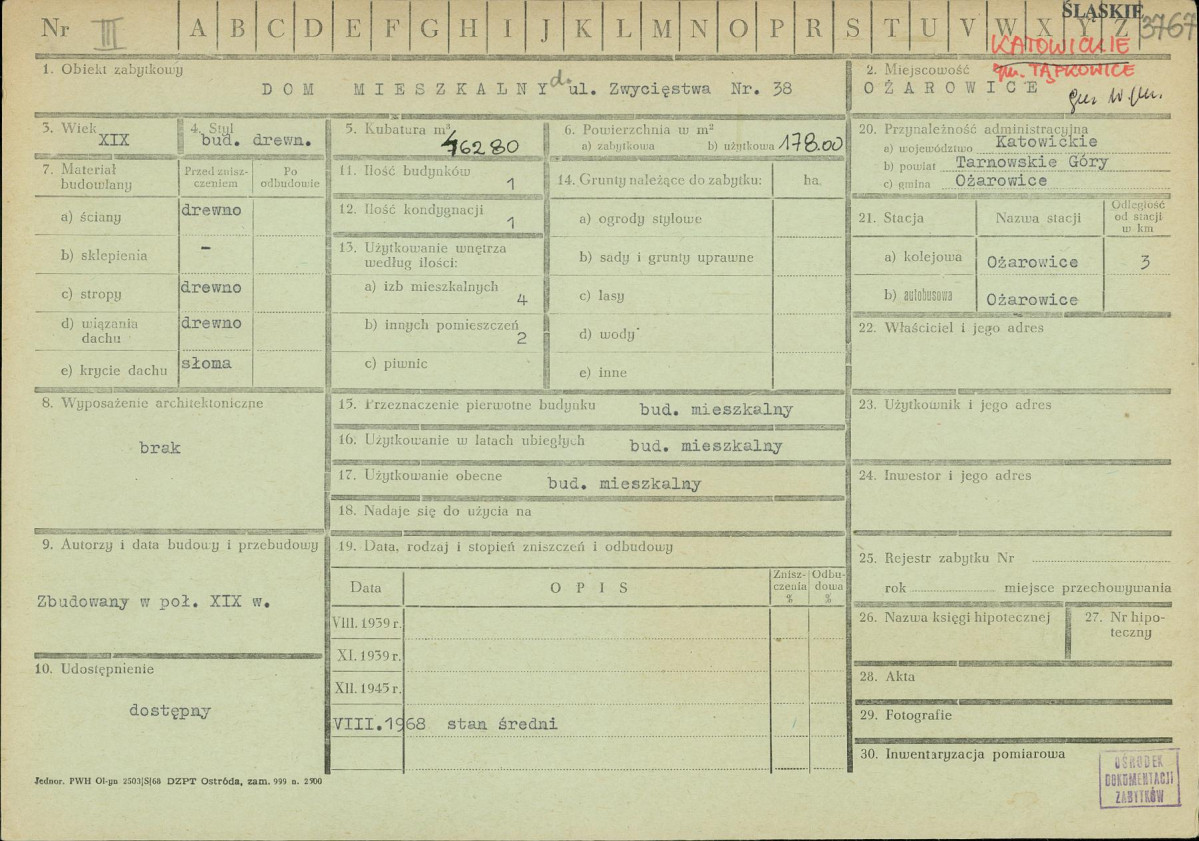 Nr III A B C D E F G H I J K L M N O P R S T U V W X Y Z ŚLĄSKIE 3767
KATOWICKIE
gm. TĄPKOWICE
1. Obiekt zabytkowy
DOM MIESZKALNY d. ul. Zwycięstwa Nr. 38
2. Miejscowość
OŻAROWICE
gm. w m.
3. Wiek
XIX
4. Styl
bud. drewn.
5. Kubatura m³
6280
6. Powierzchnia w m²
a) zabytkowa b) użytkowa 178.00
7. Materiał budowlany
Przed zniszczeniem
Po odbudowie
a) ściany drewno
b) sklepienia –
c) stropy drewno
d) wiązania dachu drewno
e) krycie dachu słoma
8. Wyposażenie architektoniczne
brak
9. Autorzy i data budowy i przebudowy
Zbudowany w poł. XIX w.
10. Udostępnienie
dostępny
Jednor. PWH Ol-pn 2503|S|68 DZPT Ostróda, zam. 999 n. 2500
11. Ilość budynków 1
12. Ilość kondygnacji 1
13. Użytkowanie wnętrza
według ilości:
a) izb mieszkalnych 4
b) innych pomieszczeń 2
c) piwnic
14. Grunty należące do zabytku: ha.
a) ogrody stylowe
b) sady i grunty uprawne
c) lasy
d) wody
e) inne
15. Przeznaczenie pierwotne budynku bud. mieszkalny
16. Użytkowanie w latach ubiegłych bud. mieszkalny
17. Użytkowanie obecne bud. mieszkalny
18. Nadaje się do użycia na
19. Data, rodzaj i stopień zniszczeń i odbudowy
Data OPIS Zniszczenia % Odbudowa %
VIII. 1939 r.
XI. 1939 r.
XII. 1945 r.
VIII.1968 stan średni
20. Przynależność administracyjna
a) województwo Katowickie
b) powiat Tarnowskie Góry
c) gmina Ożarowice
21. Stacja Nazwa stacji Odległość od stacji w km
a) kolejowa Ożarowice 3
b) autobusowa Ożarowice
22. Właściciel i jego adres
23. Użytkownik i jego adres
24. Inwestor i jego adres
25. Rejestr zabytku Nr
rok miejsce przechowywania
26. Nazwa księgi hipotecznej
27. Nr hipoteczny
28. Akta
29. Fotografie
30. Inwentaryzacja pomiarowa
OŚRODEK
DOKUMENTACJI
ZABYTKÓW